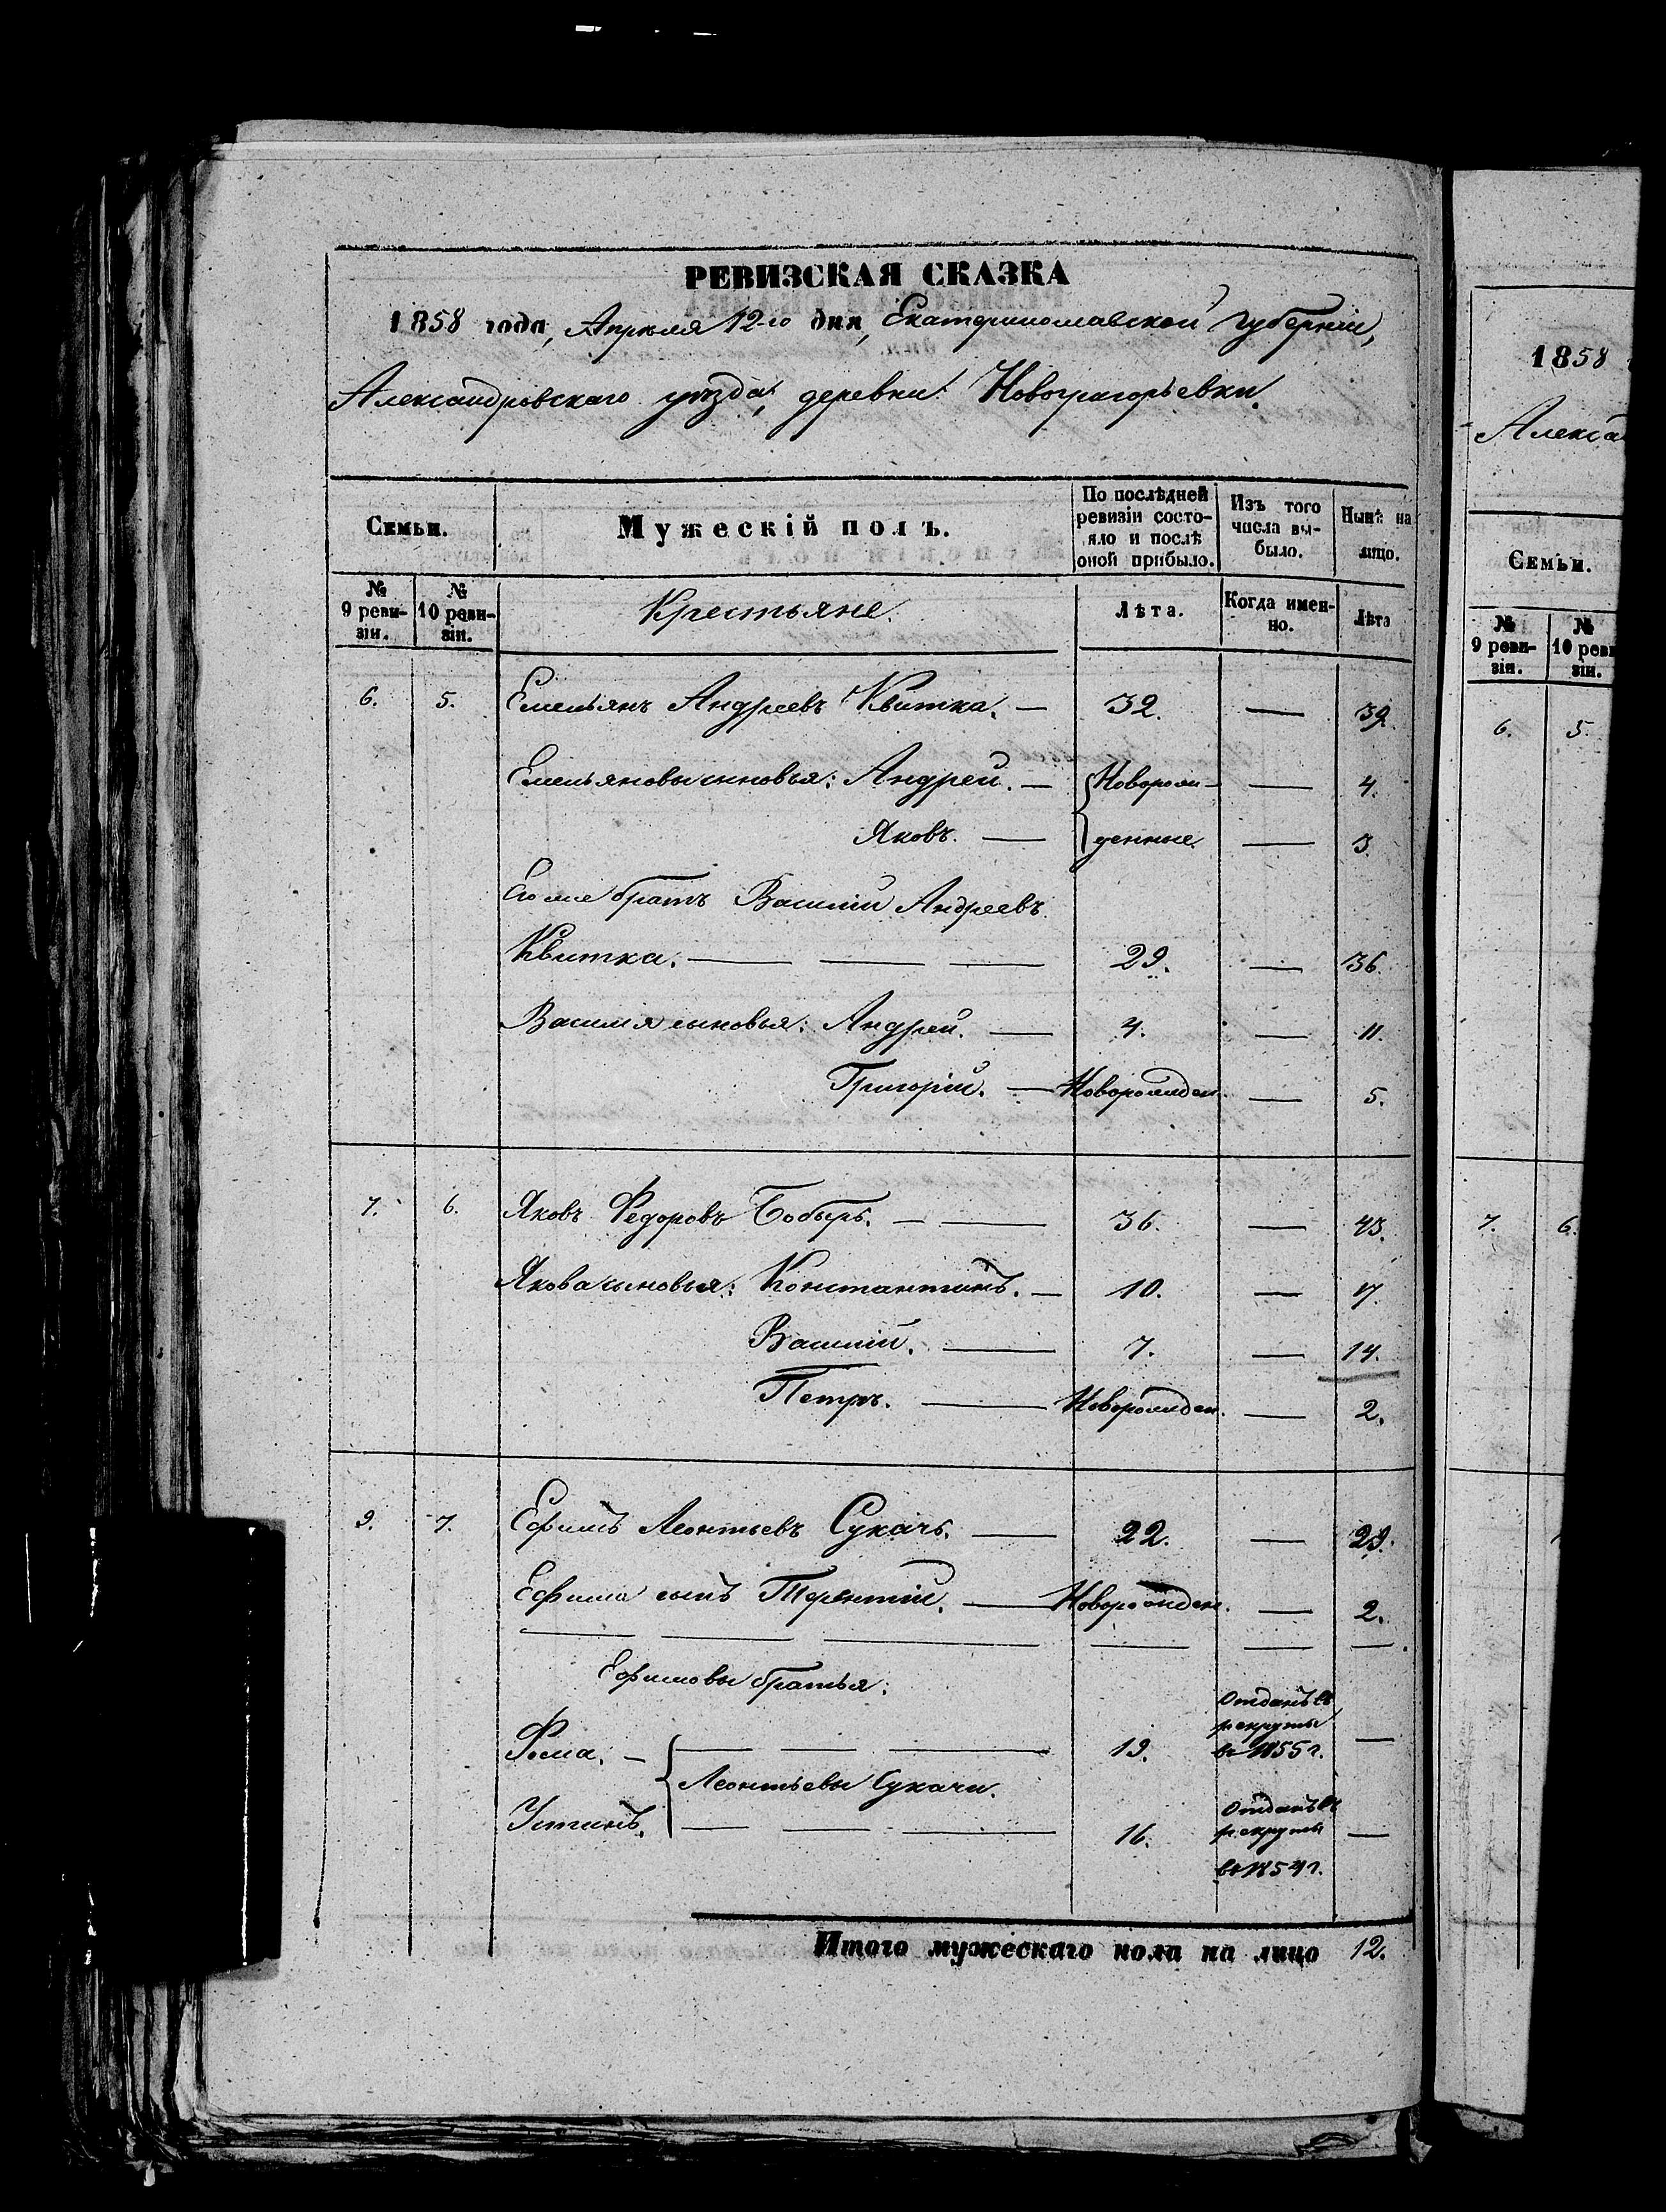 РЕВИЗСКАЯ СКАЗКА
1858 года, Апрѣля 12-го дня, Екатеринославской Губерніи,
Александровскаго уѣзда, деревни Новогригорьевки.
Семьи. Мужескій полъ. По послѣдней ревизіи состояло и послѣ оной прибыло. Изъ того числа выбыло. Нынѣ на лицо.
№ 9 ревизіи. № 10 ревизіи. Крестьяне. Лѣта. Когда именно. Лѣта
6. 5. Емельянъ Андреевъ Квитка. — 32. — 39.
Емельяновы сыновья: Андрей. — Новорож- — 4.
Яковъ. — денные — 3.
Его же братъ Василій Андреевъ
Квитка. — — — 29. — 36.
Василія сыновья: Андрей. — 4. — 11.
Григорій. — Новорожден. — 5.
7. 6. Яковъ Федоровъ Бобырь. — — 36. — 43.
Якова сыновья: Константинъ. — 10. — 17.
Василій. — 7. — 14.
Петръ. — Новорожден. — 2.
9. 7. Ефимъ Леонтьевъ Сукачъ. — 22. — 29.
Ефима сынъ Терентій. — Новорожден. — 2.
Ефимовы братья:
Фома. — 19. Отданъ въ рекруты въ 1855 г. —
Леонтьевы Сукачи.
Устинъ. 16. Отданъ въ рекруты въ 1854 г. —
Итого мужескаго пола на лицо 12.
1858
Алекса
Семьи.
№ 9 ревизіи. № 10 реви зіи.
6. 5.
7. 6.